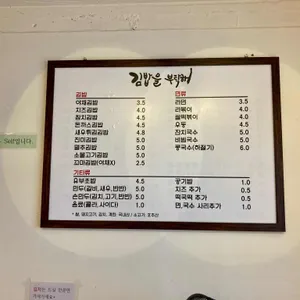 김밥을 부탁해
김밥
야채김밥 3.5
치즈김밥 4.5
참치김밥 4.5
돈까스김밥 4.5
새우튀김김밥 5.0
진미김밥 5.0
땡추김밥 5.0
소불고기김밥 5.0
꼬마김밥(야채X) 2.5
면류
라면 4.0
라볶이 4.0
쫄떡볶이 4.0
우동 4.5
잔치국수 5.0
비빔국수 5.0
콩국수(하절기) 6.0
기타류
유부초밥 4.5
만두(갈비,새우,반반) 5.0
손만두(김치,고기,반반) 5.0
음료(콜라,사이다) 1.0
공기밥 1.0
치즈 추가 0.5
떡국떡 추가 0.5
면,국수 사리추가 1.0
입니다.